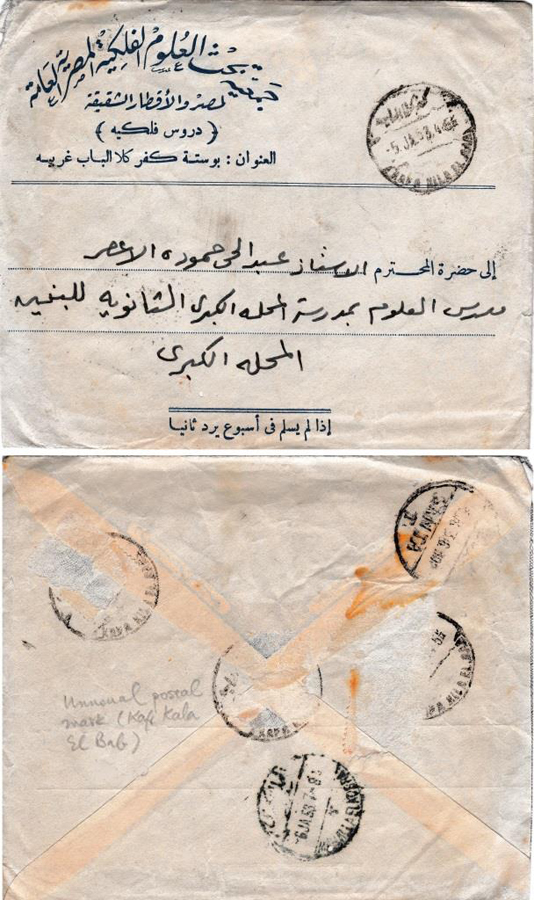 جمعية بحث العلوم الفلكية المصرية العامة
لمصر والأقطار الشقيقة
( دروس فلكيه )
العنوان : بوستة كفر كلا الباب غربيه
-5.JA.53.4-55
KAFR KILA EL BAB
إلى حضرة المحترم الاستاذ عبد الحى حموده الاعصر
مدرس العلوم بمدرسة المحله الكبرى الثانويه للبنين
المحله الكبرى
إذا لم يسلم فى أسبوع يرد ثانيا
TANTA
Unusual postal
mark (Kafr Kala
El Bab)
-6.JA.53.7-